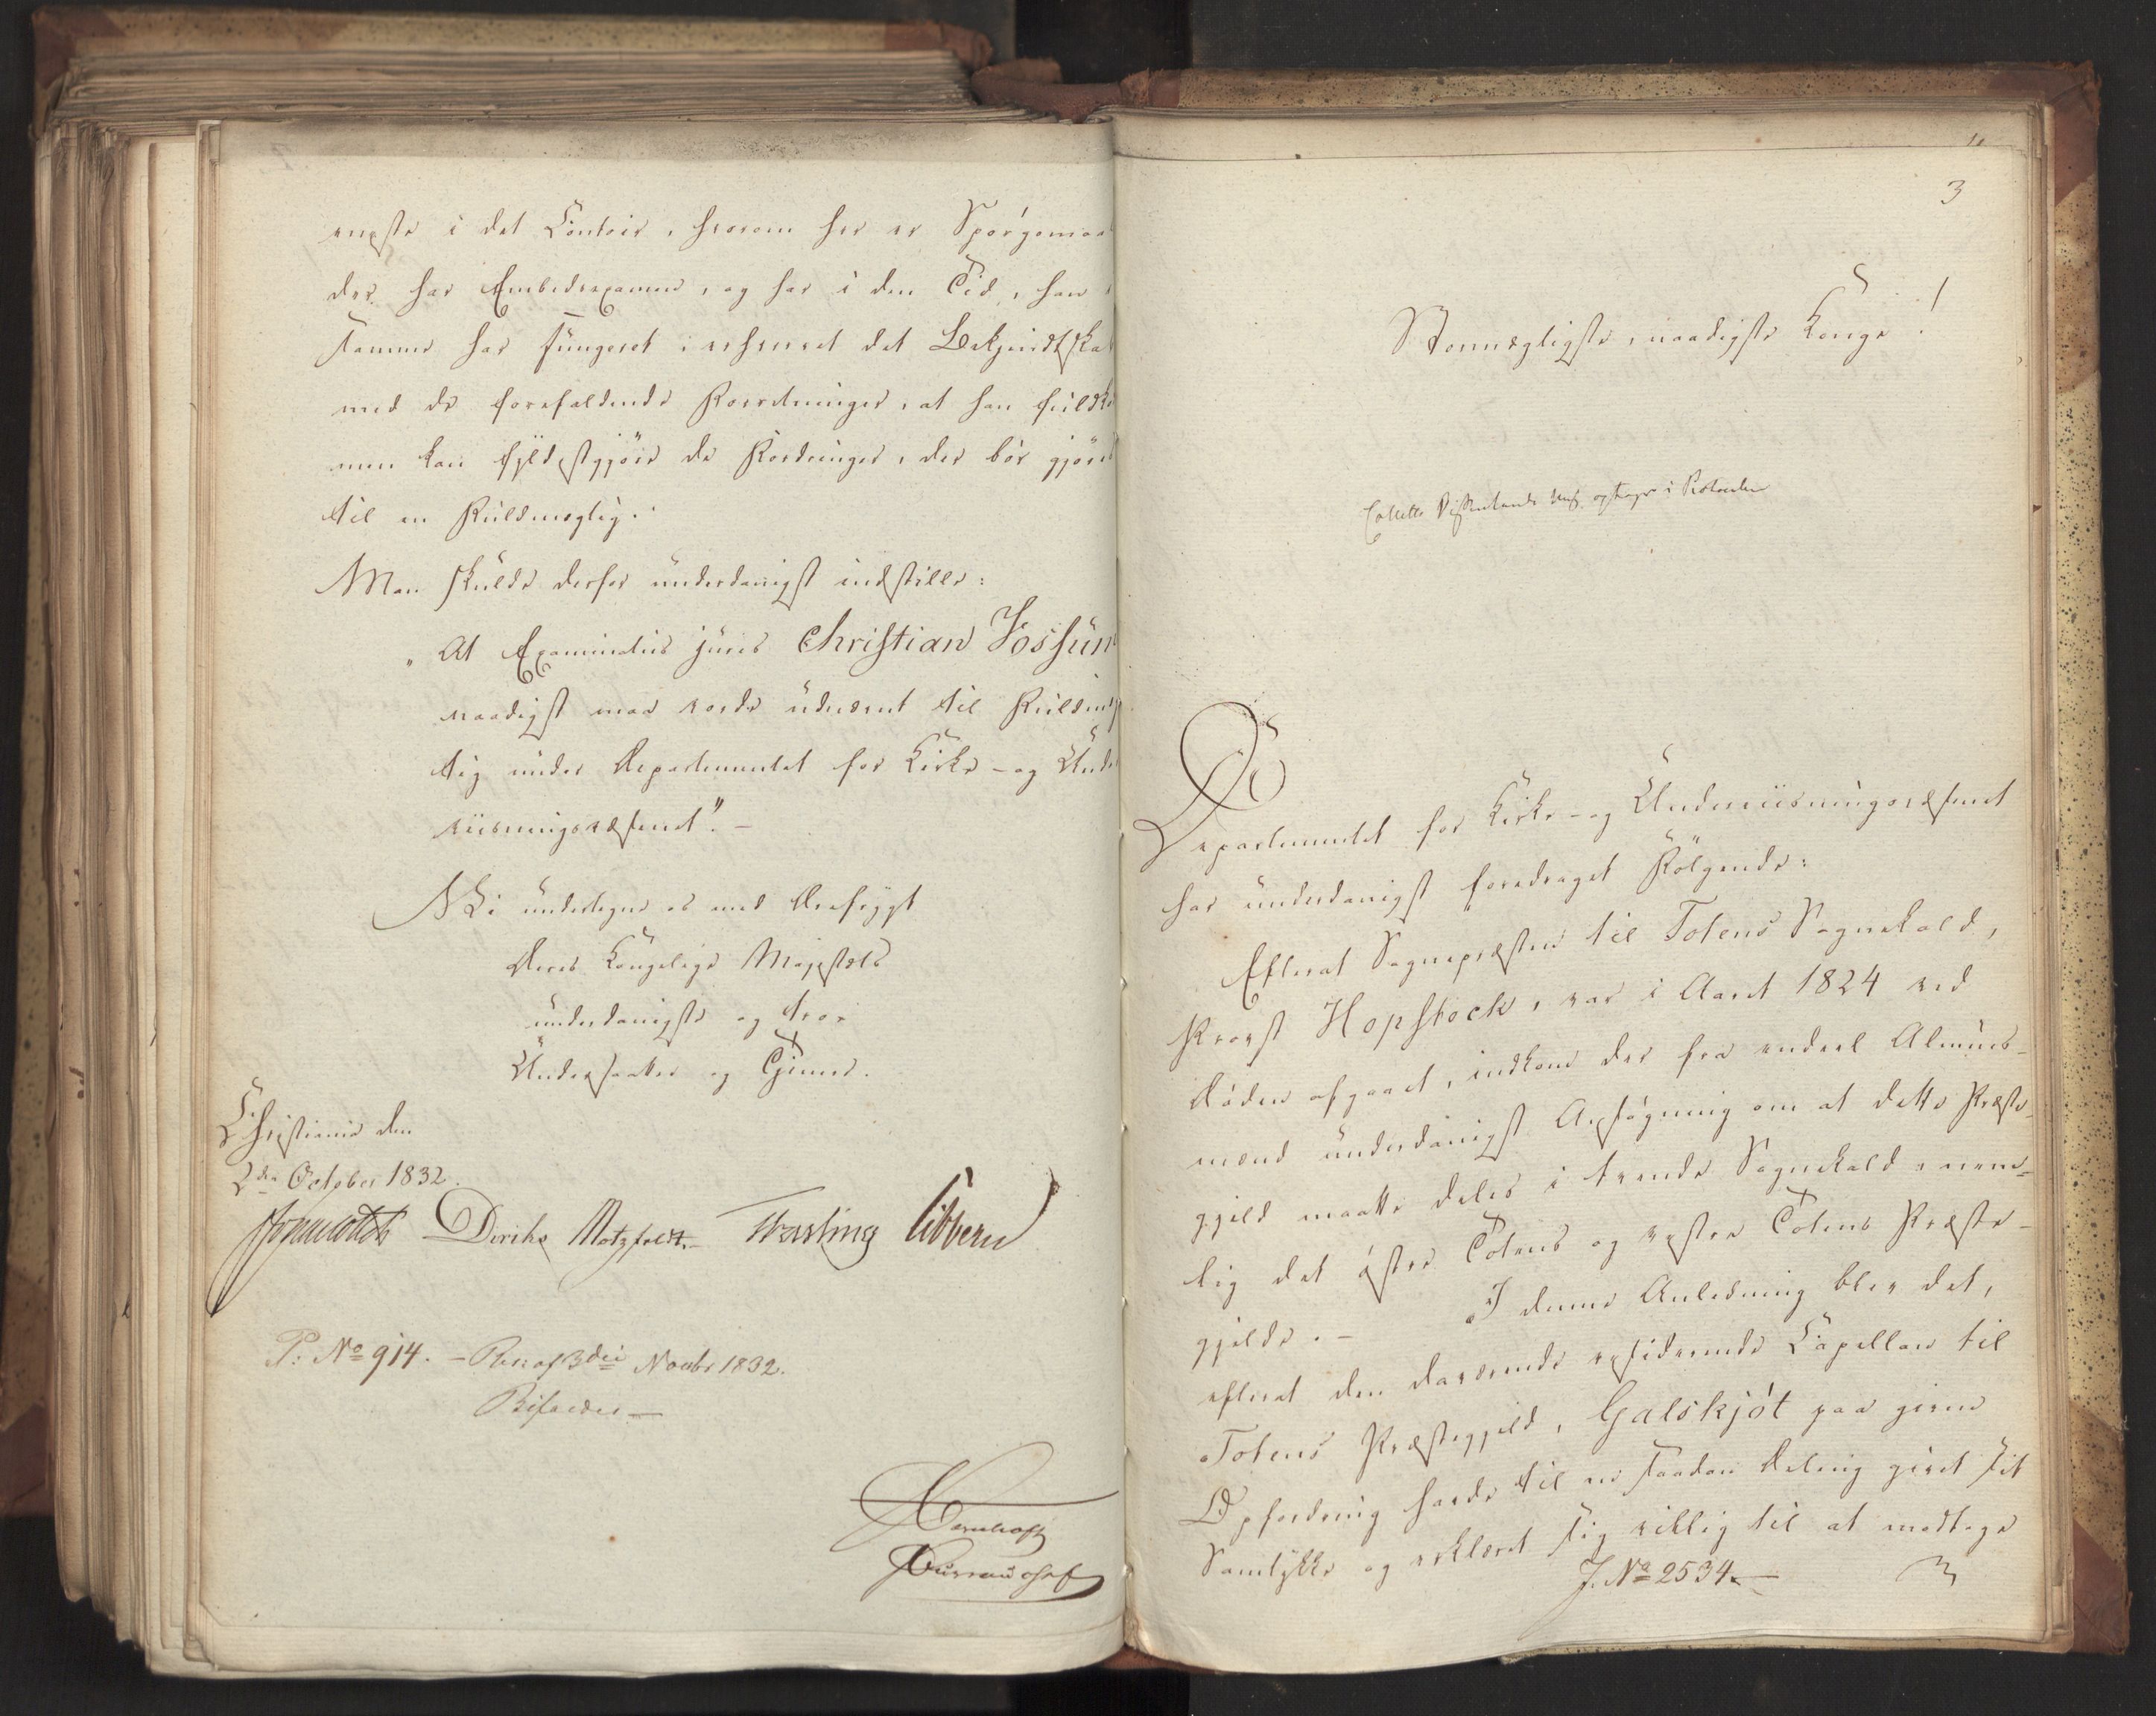 eneste i det Contoir, hvorom her er Spörgsmaa
der har Embedsexamen, og har i den Tid, han i
samme har fungeret, erhvervet det Bekjendtska
med de forefaldende Forretninger, at han fuldk
men kan fyldestgjöre de Fordringer, der bör gjöres
til en Fuldmægtig.
Man skulde derfor underdanigst indstille:
"At Examinatus juris Christian Vossun
naadigst maa vorde udnævnt til Fuldmæg
tig under Departementet for Kirke- og Unde
viisningsvæsenet". -
Vi undertegne os med Ærefrygt
Deres Kongelige Majestæts
underdanigste og troe
Undersaatter og Tjenere.
Christiania den
2den October 1832.
Diriks Motzfeldt. Fasting Sibbern
P: No 914. - Ren af 3die Novbr 1832.
Bifaldes -
Bureauchef
3
Stormægtigste, naadigste Konge!
Colletts Dissenterende optages i Protocollen
Departementet for Kirke- og Underviisningsvæsenet
har underdanigst foredraget Fölgende:
"Efterat Sognepræsten til Totens Sognekald,
Provst Hopstock, var i Aaret 1824 ved
Döden afgaaet, indkom der fra endeel Almues-
mænd underdanigst Ansögning om at dette Præste-
gjeld maatte deles i tvende Sognekald, nem-
lig det östre Totens og vestre Totens Præste-
gjelde. - I denne Anledning blev det,
efterat den daværende residerende Capellan til
Totens Præstegjeld, Galskjöt paa given
Opfordring havde til en saadan Deling givet sit
Samtykke og erklæret sig villig til at modtage
J. No 2534. -